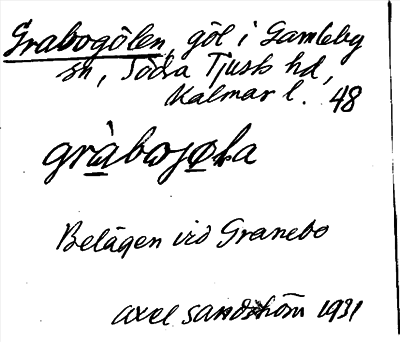 Grabogölen, göl i Gamleby
sn, Södra Tjusts hd,
Kalmar l. 48
gràbωjøla
Belägen vid Granebo
Axel Sandström 1931